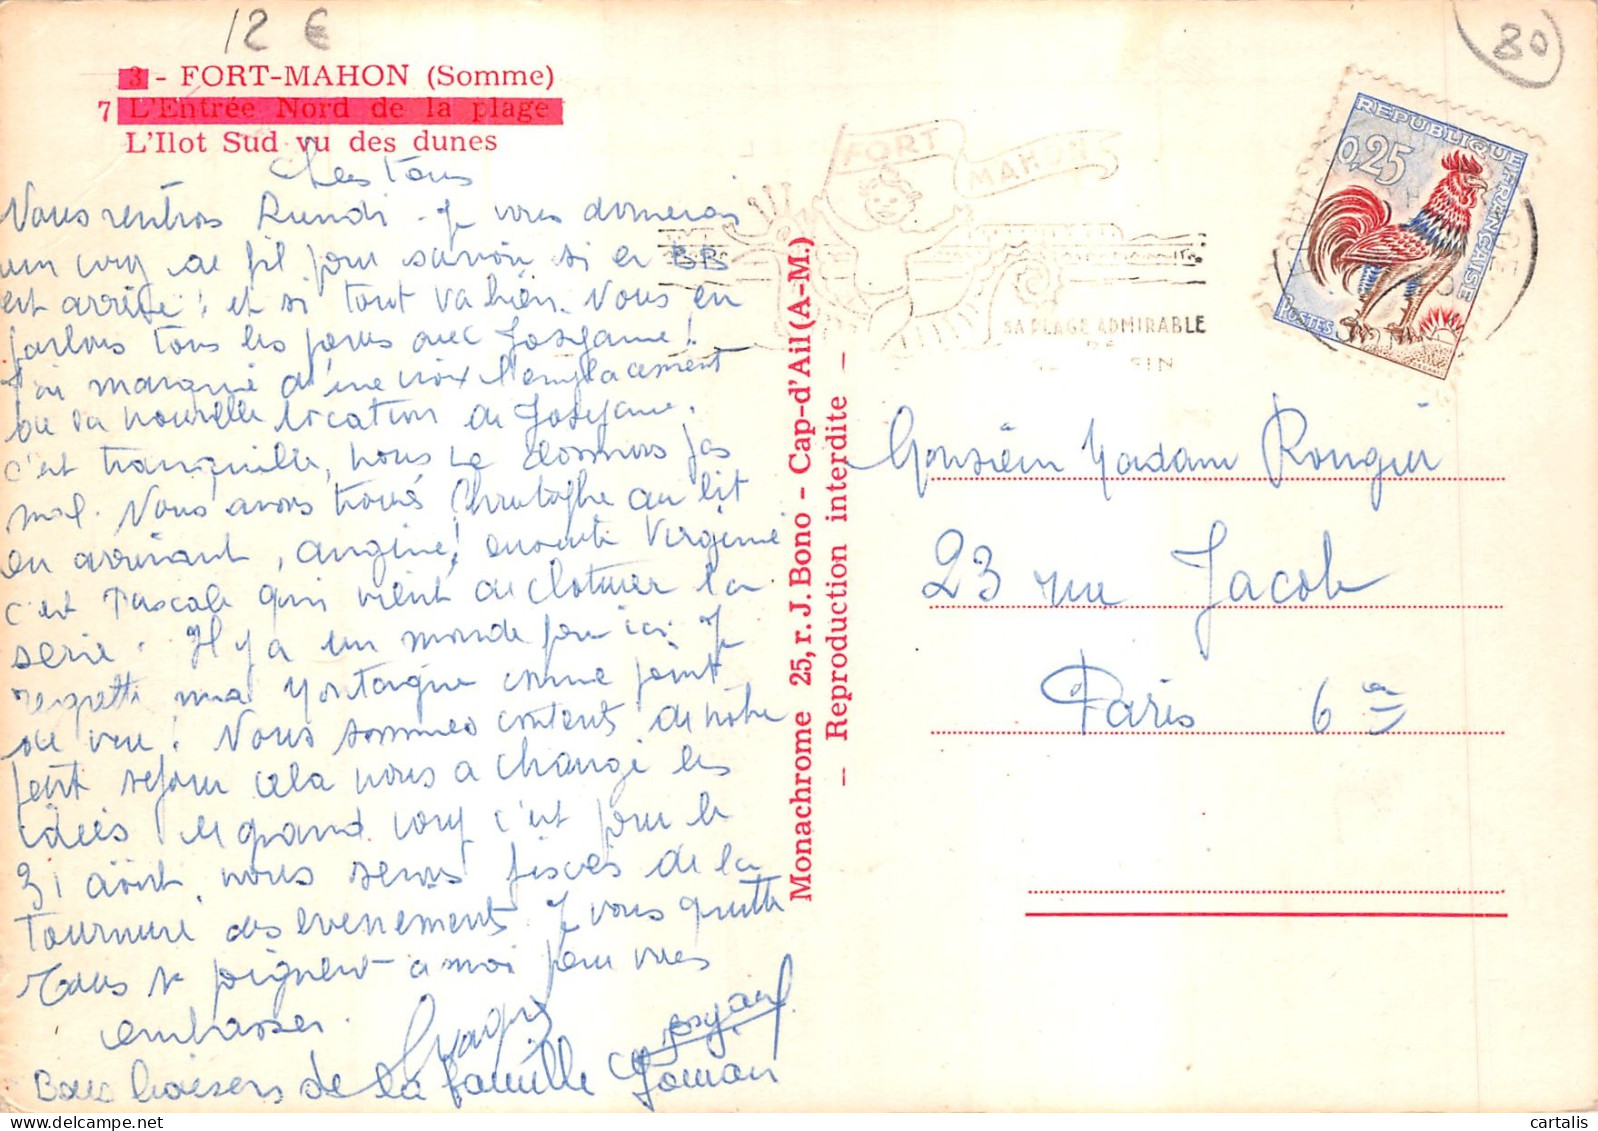 12 €
80
3 - FORT-MAHON (Somme)
7 L'Entrée Nord de la plage
L'Ilot Sud vu des dunes
Chers tous
Nous rentrons Lundi. Je vous donnerai
un coup de fil pour savoir si le BB
est arrivé ! et si tout va bien. Nous en
parlons tous les jours avec Josyane !
J'ai marqué d'une croix l'emplacement
de la nouvelle location de Josyane.
c'est tranquille, nous ne dormons pas
mal. Nous avons trouvé Christophe au lit
en arrivant, angine ! ensuite Virginie
c'est Pascale qui vient de cloturer la
serie. Il y a un monde fou ici. Je
regrette ma Montagne comme point
de vue ! Nous sommes contents de notre
petit sejour cela nous a changé les
idées le grand coup c'est pour le
31 août, nous serons fixés de la
tournure des evenements. Je vous quitte
Tous se joignent à moi pour vous
embasser.
Josyane
Bons baisers de la famille
FORT MAHON
SA PLAGE ADMIRABLE
DE
SIN
REPUBLIQUE FRANÇAISE
0,25
POSTES
Monachrome 25, r. J. Bono - Cap-d'Ail (A-M.)
— Reproduction interdite —
Monsieur Madame Rougier
23 rue Jacob
Paris 6e
cartalis